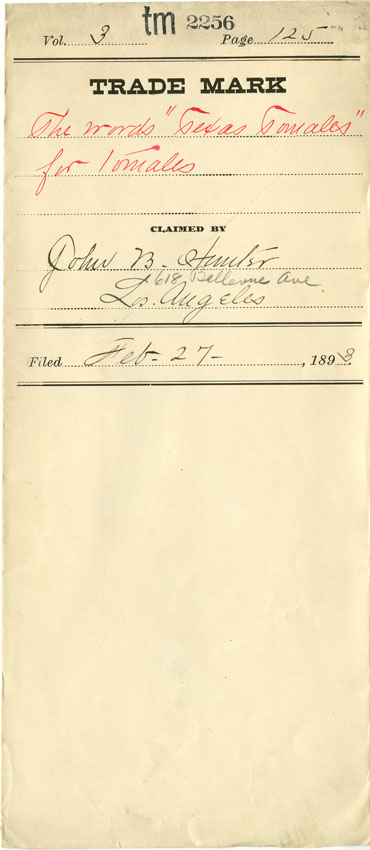 tm 2256
Vol. 3 Page 125
TRADE MARK
The words "Texas Tomales"
for Tomales
CLAIMED BY
John B. Hunter
618 Bellevue Ave.
Los Angeles
Filed Feb- 27- , 1898.